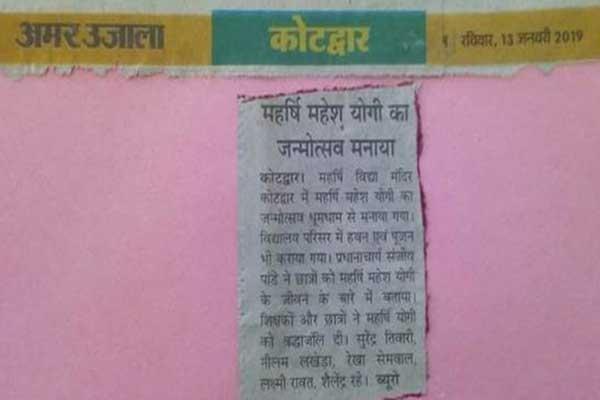 अमर उजाला
कोटद्वार
रविवार, 13 जनवरी 2019
महर्षि महेश योगी का
जन्मोत्सव मनाया
कोटद्वार। महर्षि विद्या मंदिर
कोटद्वार में महर्षि महेश योगी का
जन्मोत्सव धूमधाम से मनाया गया।
विद्यालय परिसर में हवन एवं पूजन
भी कराया गया। प्रधानाचार्य संजीव
पांडे ने छात्रों को महर्षि महेश योगी
के जीवन के बारे में बताया।
शिक्षकों और छात्रों ने महर्षि योगी
को श्रद्धांजलि दी। सुरेंद्र तिवारी,
नीलम लखेड़ा, रेखा सेमवाल,
लक्ष्मी रावत, शैलेंद्र रहे। ब्यूरो